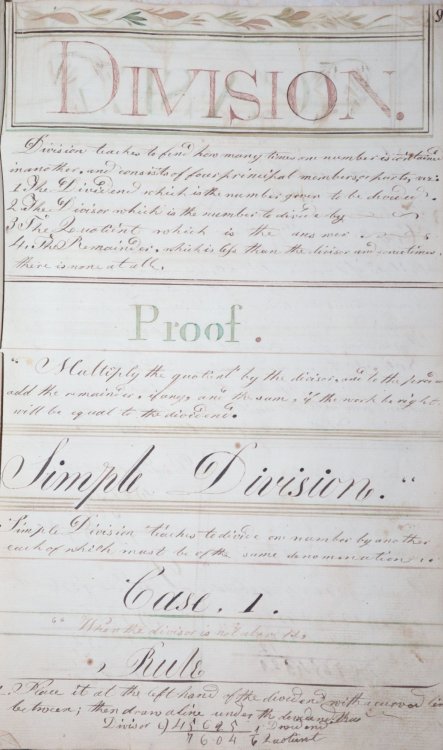 9
DIVISION.
Division teaches to find how many times one number is contained
in another, and consists of four principal members or parts, viz:
1. The Dividend which is the number given to be divided.
2. The Divisor which is the number to divide by
3 The Quotient which is the answer
4. The Remainder, which is less than the divisor and sometimes
there is none at all.
Proof.
"Multiply the quotient by the divisor, and to the
add the remainder, if any, and the sum, if the work be right
will be equal to the dividend.
Simple Division."
Simple Division teaches to divide one number by another
each of which must be of the same denomination.
Case. 1.
"When the divisor is not above 12.
Rule
1. Place it at the left hand of the dividend, with a curved line
between; then draw a line under the dividend, thus
Divisor 6) 45625 Dividend
7604 Quotient